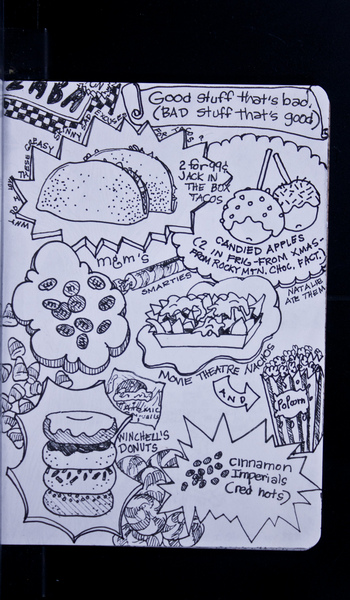 ZABA
Good stuff that's bad.
(BAD stuff that's good)
2 for 99¢
JACK IN
THE BOX
TACOS
CANDIED APPLES
(2 IN FRIG - FROM XMAS -
FROM ROCKY MTN. CHOC. FACT.
NATALIE
ATE THEM
m&m's
SMARTIES
MOVIE THEATRE NACHOS
AND
Popcorn
ATOMIC
WINCHELL'S
DONUTS
Cinnamon
Imperials
(red hots)